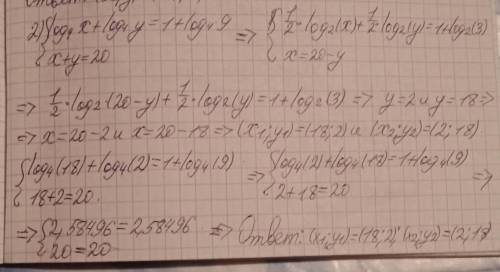 2) { log₄ x + log₄ y = 1 + log₄ 9 => { 1/2 · log₂(x) + 1/2 · log₂(y) = 1 + log₂(3)
{ x + y = 20 { x = 20 - y
=> 1/2 · log₂(20 - y) + 1/2 · log₂(y) = 1 + log₂(3) => y = 2 и y = 18 =>
=> x = 20 - 2 и x = 20 - 18 => (x₁; y₁) = (18; 2) и (x₂; y₂) = (2; 18)
{ log₄(18) + log₄(2) = 1 + log₄(9) => { log₄(2) + log₄(18) = 1 + log₄(9) =>
{ 18 + 2 = 20. { 2 + 18 = 20
=> { 2,58496 = 2,58496 => Ответ: (x₁; y₁) = (18; 2); (x₂; y₂) = (2; 18
{ 20 = 20